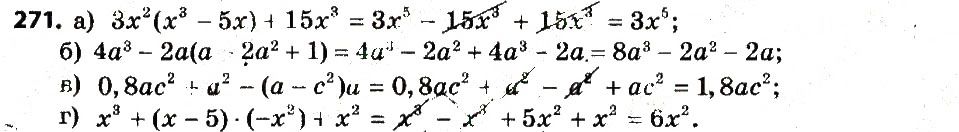 271. а) 3x²(x³ − 5x) + 15x³ = 3x⁵ − 15x³ + 15x³ = 3x⁵;
б) 4a³ − 2a(a − 2a² + 1) = 4a³ − 2a² + 4a³ − 2a = 8a³ − 2a² − 2a;
в) 0,8ac² + a² − (a − c²)a = 0,8ac² + a² − a² + ac² = 1,8ac²;
г) x³ + (x − 5) · (−x²) + x² = x³ − x³ + 5x² + x² = 6x².